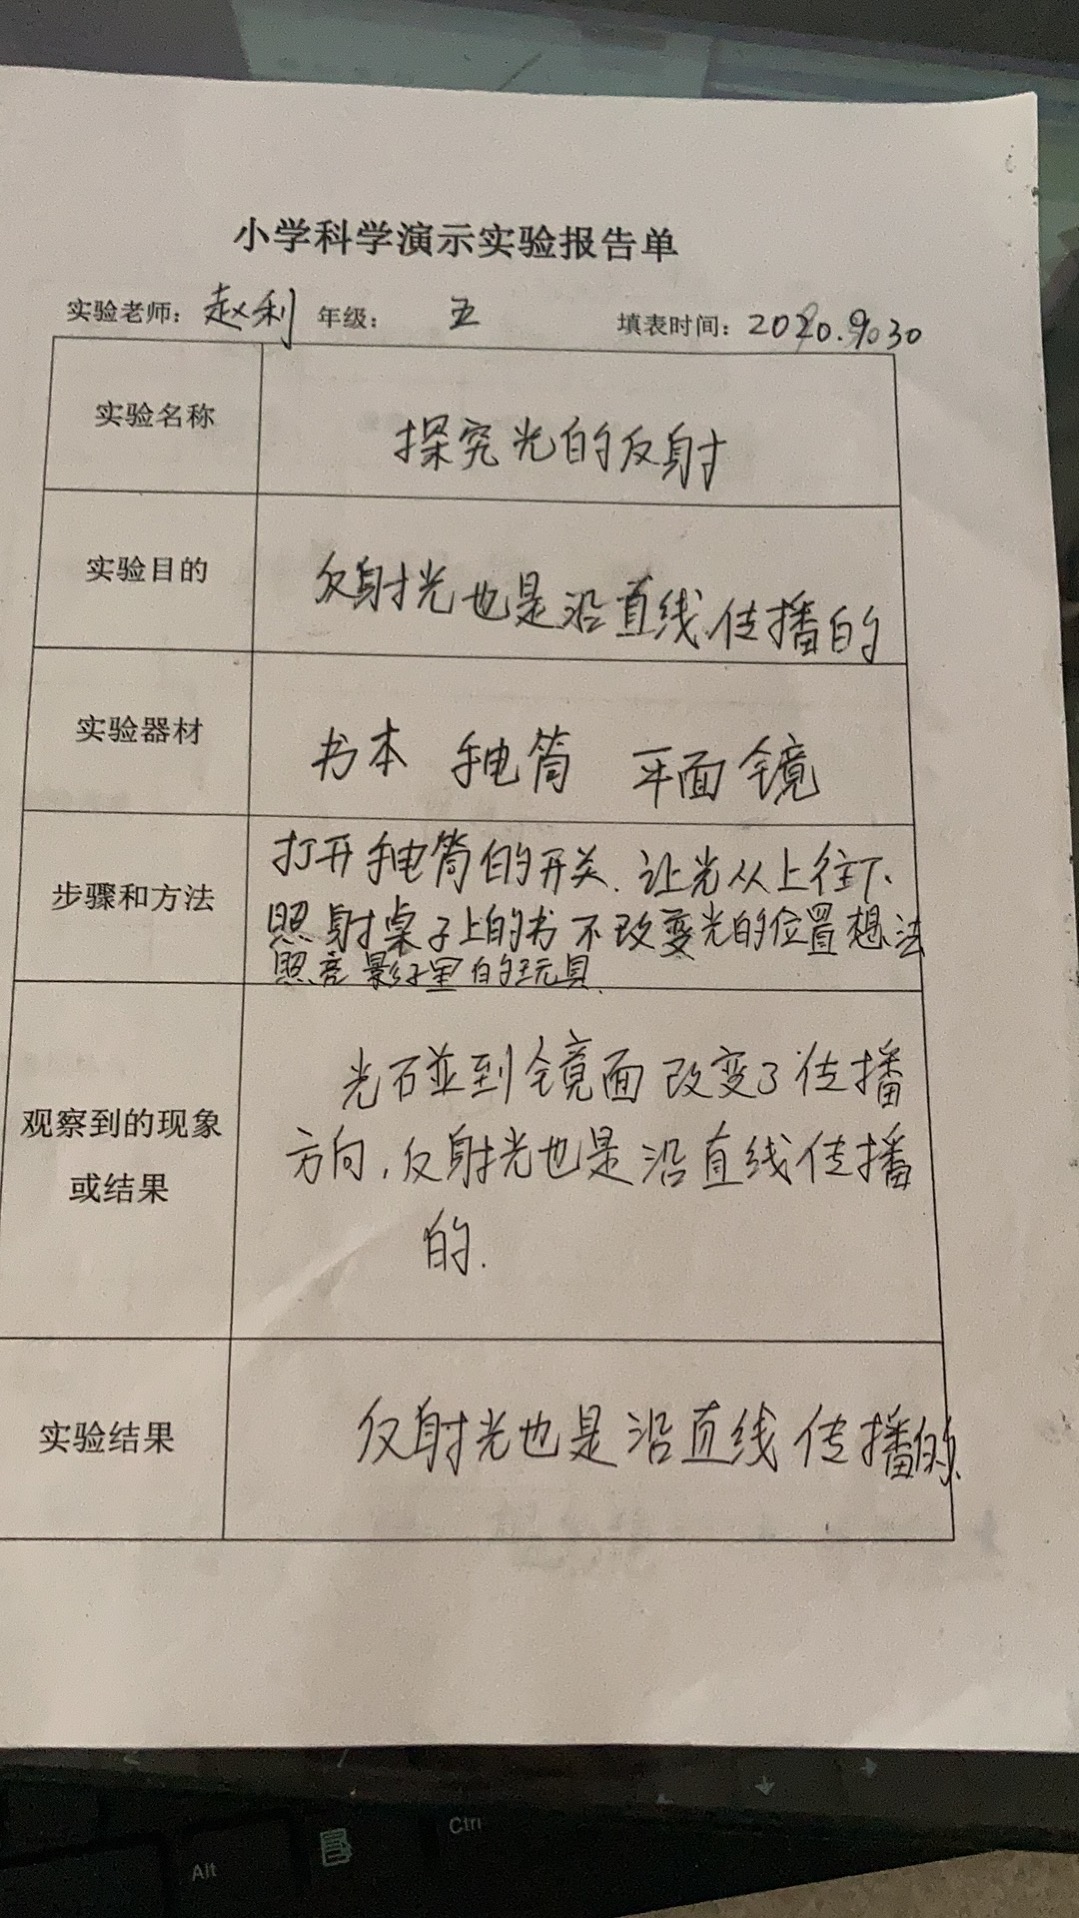 小学科学演示实验报告单
实验老师：赵利 年级： 五 填表时间：2020.9.30
实验名称 探究光的反射
实验目的 反射光也是沿直线传播的
实验器材 书本 手电筒 平面镜
步骤和方法
打开手电筒的开关.让光从上往下
照射桌子上的书不改变光的位置想法
照亮影子里的玩具.
观察到的现象
或结果
光碰到镜面改变了传播
方向,反射光也是沿直线传播
的.
实验结果 反射光也是沿直线传播的.
Alt
Ctrl